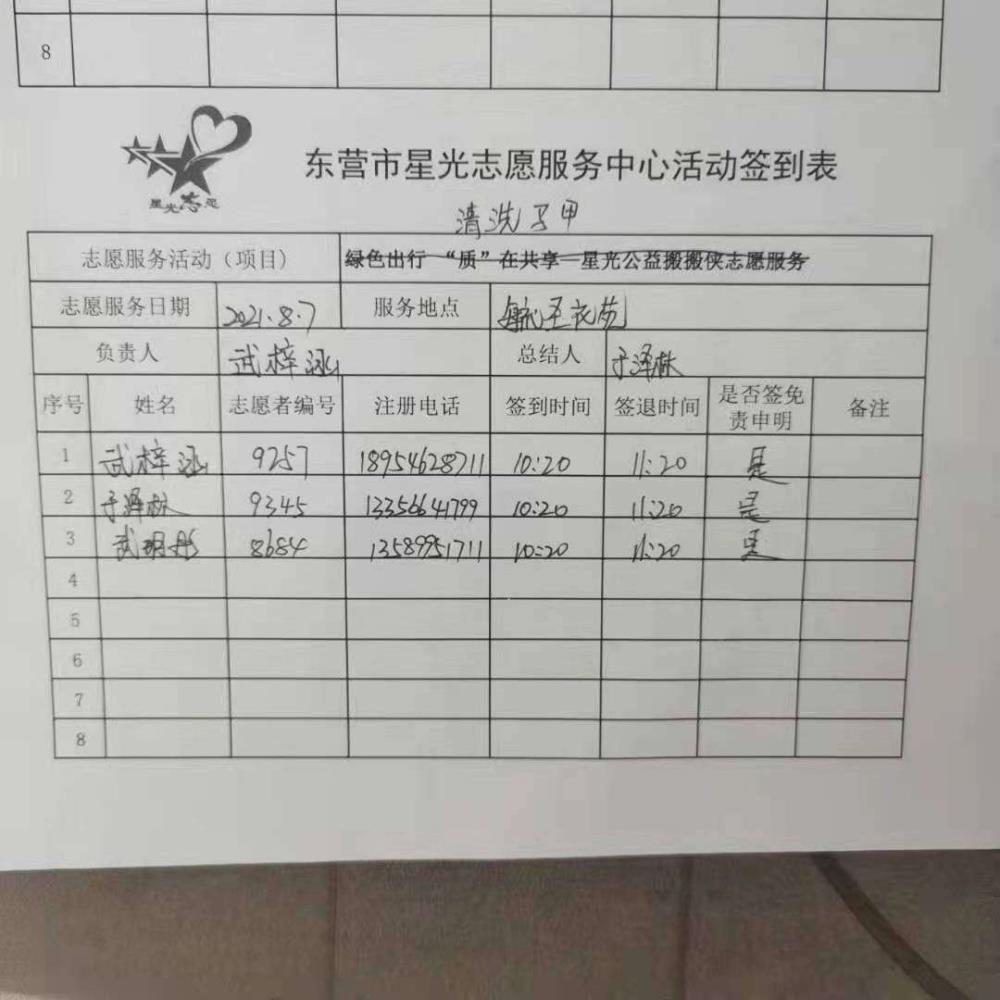 8
星光志愿
东营市星光志愿服务中心活动签到表
清洗马甲
志愿服务活动（项目） 绿色出行 “质”在共享—星光公益搬搬侠志愿服务
志愿服务日期 2021.8.7 服务地点
负责人 武梓泓 总结人 于泽林
序号 姓名 志愿者编号 注册电话 签到时间 签退时间 是否签免责申明 备注
1 武梓泓 9257 18954628711 10:20 11:20 是
2 于泽林 9345 13356641799 10:20 11:20 是
3 武明彤 8684 13589951711 10:20 11:20 是
4
5
6
7
8